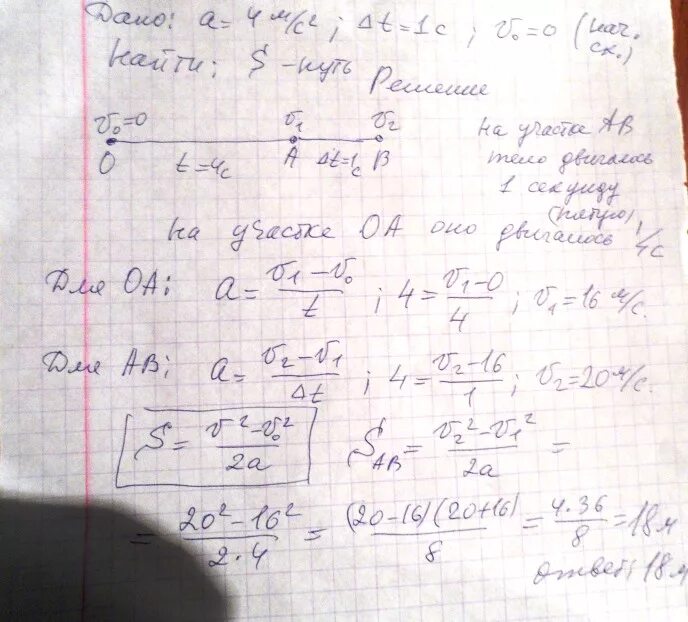 Дано: a = 4 м/с² ; Δt = 1с ; v₀ = 0 (нач. ск.)
Найти: S - путь
Решение
v₀=0 v₁ v₂
O t=4с A Δt=1с B
на участке AB
тело двигалось
1 секунду
(пятую)
на участке OA оно двигалось 4с
Для OA: a = (v₁ - v₀)/t ; 4 = (v₁ - 0)/4 ; v₁ = 16 м/с.
Для AB: a = (v₂ - v₁)/Δt ; 4 = (v₂ - 16)/1 ; v₂ = 20 м/с.
S = (v² - v₀²)/2a S_AB = (v₂² - v₁²)/2a =
= (20² - 16²)/2·4 = (20-16)(20+16)/8 = 4·36/8 = 18м
ответ: 18м